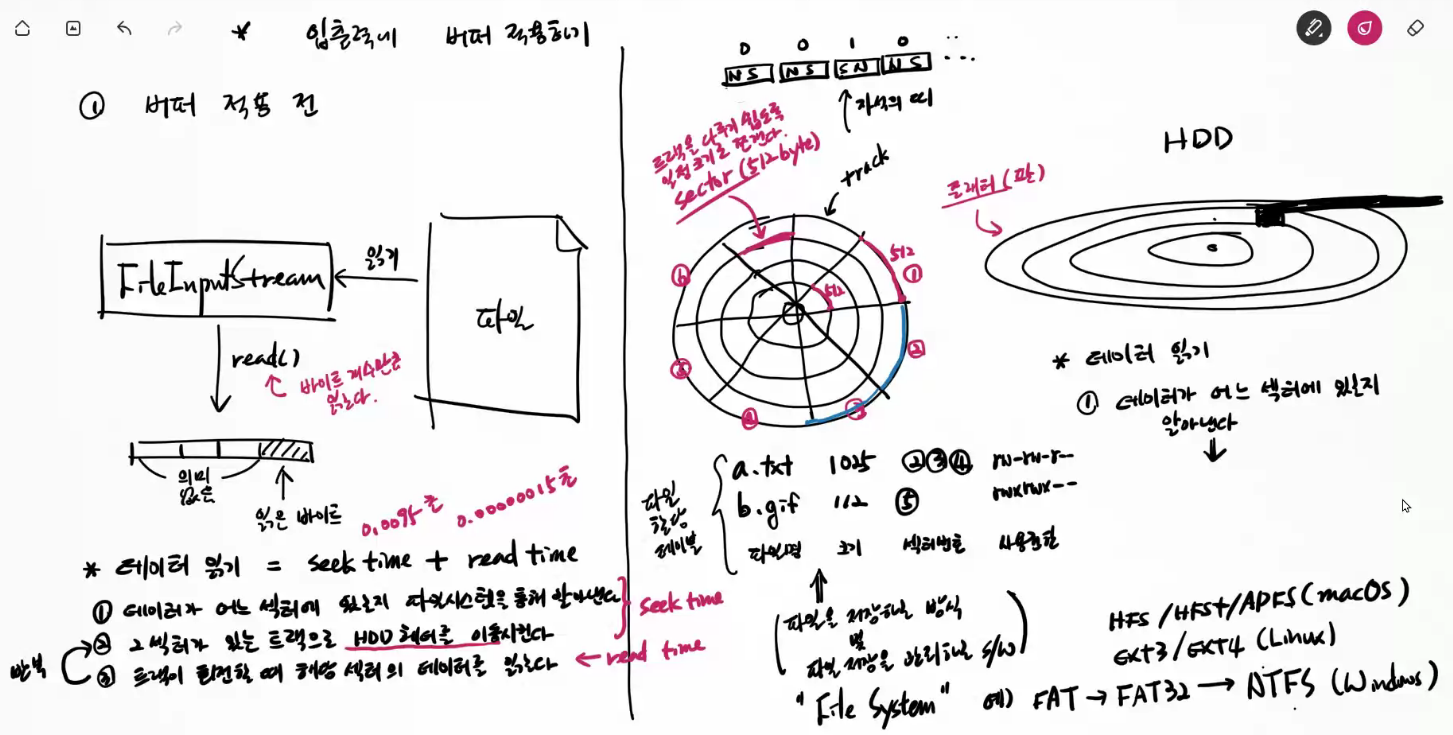 * 입출력에 버퍼 적용하기
① 버퍼 적용 전
FileInputStream
읽기
파일
read()
바이트 개수만큼
읽는다.
의미
없음
읽은 바이트
0.0095초 0.00000015초
* 데이터 읽기 = seek time + read time
① 데이터가 어느 섹터에 있는지 파일시스템을 통해 알아낸다
② 그 섹터가 있는 트랙으로 HDD 헤더를 이동시킨다
③ 트랙이 회전할 때 해당 섹터의 데이터를 읽는다
반복
seek time
read time
0 0 1 0 ...
NS NS SN NS ...
자석의 띠
트랙을 다루기 쉽도록
일정 크기로 쪼갠다.
sector (512byte)
track
512
512
① ② ③ ④ ⑤ ⑥
HDD
플래터 (판)
* 데이터 읽기
① 데이터가 어느 섹터에 있는지
알아낸다
파일
할당
테이블
a.txt 1025 ②③④ rw-rw-r--
b.gif 112 ⑤ rwxrwx---
파일명 크기 섹터번호 사용권한
파일을 저장하는 방식
및
파일 저장을 관리하는 S/W
"File System" 예) FAT → FAT32 → NTFS (Windows)
HFS/HFS+/APFS (macOS)
EXT3/EXT4 (Linux)